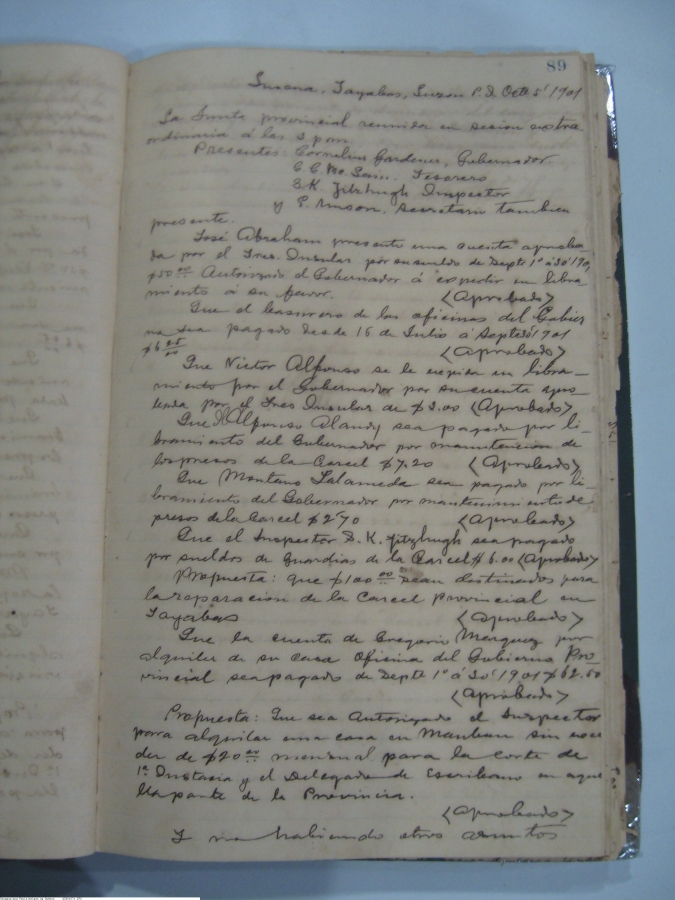 89
Lucena, Tayabas, Luzon P.I. Octe 5' 1901
La Junta provincial reunida en secion extra
ordinaria á las 3 p.m.
Presentes: Cornelius Gardener, Gobernador
Tesorero
S.K. Fitzhugh Inspector
y P. Unson, Secretario tambien
presente.
José Abraham presente una cuenta aproba-
da por el Tres. Insular por sueldo de Septe 1º á 30' 190,
$50 00 Autorizado el Gobernador á expedir un libra
miento á su favor. <Aprobado>
Que el basurero de las oficinas del Gobier
no sea pagado desde 16 de Julio á Septe 30' 1901
<Aprobado>
Que Victor Alfonso se le expida un libra-
miento por el Gobernador por su cuenta apro
bada por el Tres Insular de $3.00 <Aprobado>
Que Alfonso Alandy sea pagado por li-
bramiento del Gobernador por manutencion de
los presos de la Carcel $7.20 <Aprobado>
Que Montano Salameda sea pagado por li-
bramiento del Gobernador por mantenimiento de
presos de la Carcel $2.70 <Aprobado>
Que el Inspector S. K. Fitzhugh sea pagado
por sueldos de guardias de la Carcel $6.00 <Aprobado>
Propuesta: que $100 00 sean destinados para
la reparacion de la Carcel provincial en
Tayabas <Aprobado>
Que la cuenta de Gregorio Marquez por
alquiler de su casa Oficina del Gobierno Pro-
vincial sea pagado de Septe 1º á 30' 1901 $62.50
<Aprobado>
Propuesta: Que sea Autorizado el Inspector
para alquilar una casa en Mauban sin exce
der de $20 00 mensual para la Corte de
1ª Instacia y el Delegado de Escribano en aque
lla parte de la Provincia.
<Aprobado>
Y no habiendo otros asuntos